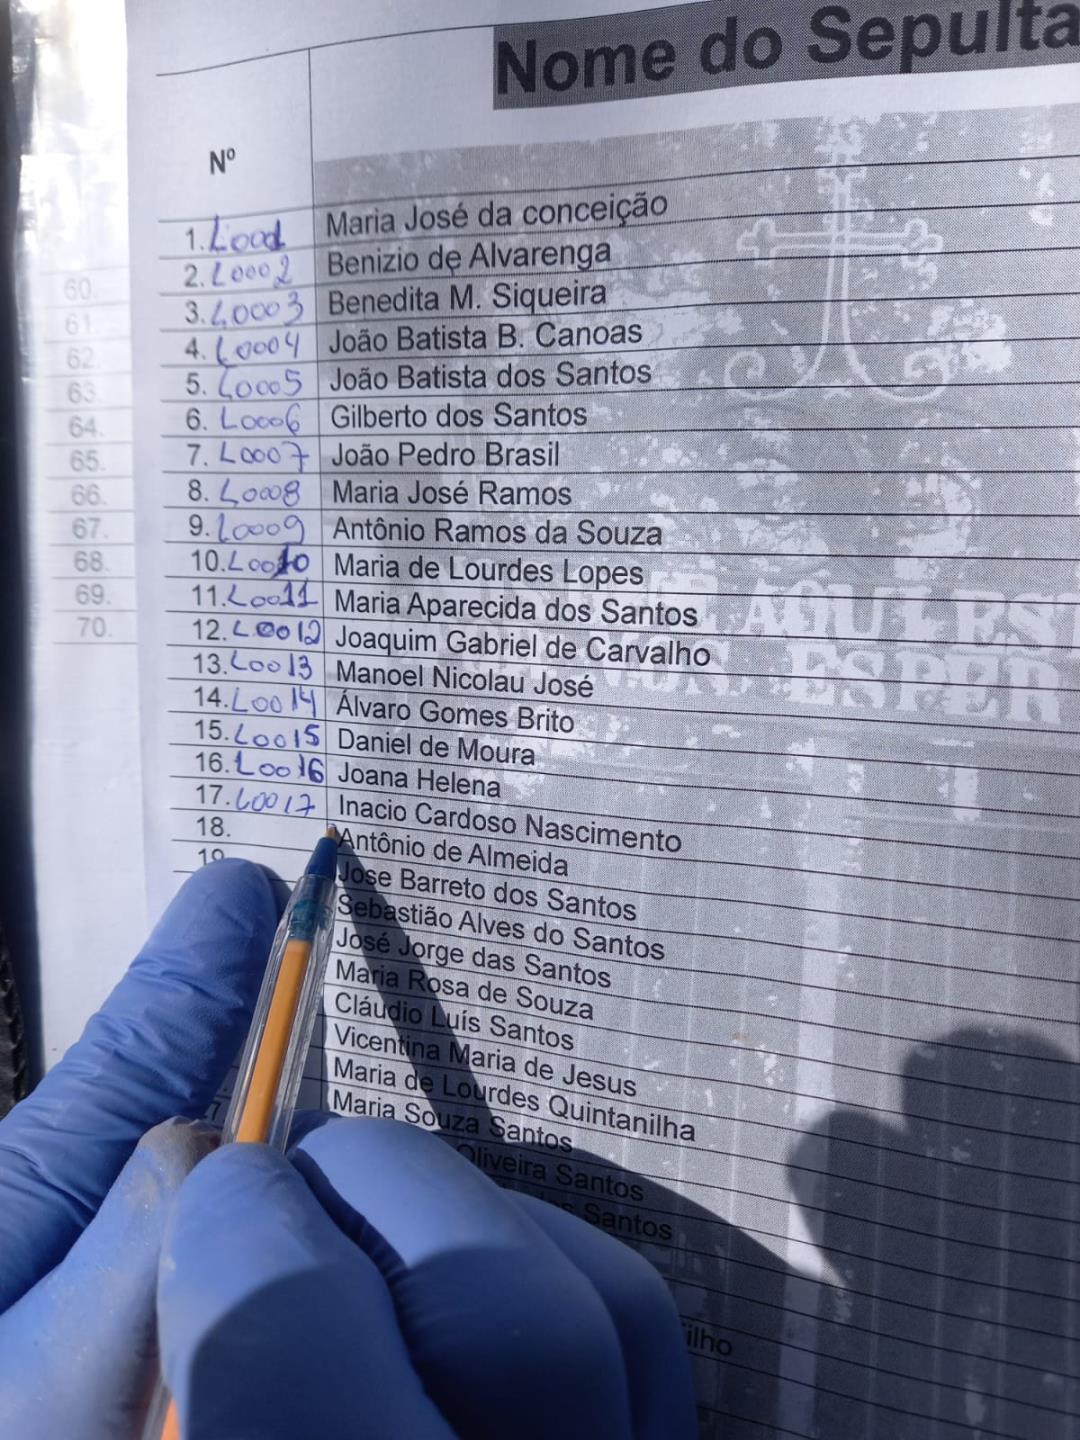 Nome do Sepulta
Nº
1. L0001 Maria José da conceição
2. L0002 Benizio de Alvarenga
3. L0003 Benedita M. Siqueira
4. L0004 João Batista B. Canoas
5. L0005 João Batista dos Santos
6. L0006 Gilberto dos Santos
7. L0007 João Pedro Brasil
8. L0008 Maria José Ramos
9. L0009 Antônio Ramos da Souza
10. L0010 Maria de Lourdes Lopes
11. L0011 Maria Aparecida dos Santos
12. L0012 Joaquim Gabriel de Carvalho
13. L0013 Manoel Nicolau José
14. L0014 Álvaro Gomes Brito
15. L0015 Daniel de Moura
16. L0016 Joana Helena
17. L0017 Inacio Cardoso Nascimento
18. Antônio de Almeida
19 Jose Barreto dos Santos
Sebastião Alves do Santos
José Jorge das Santos
Maria Rosa de Souza
Cláudio Luís Santos
Vicentina Maria de Jesus
Maria de Lourdes Quintanilha
Maria Souza Santos
Oliveira Santos
Santos
ilho
AQUI EST
ESPER
60.
61.
62.
63.
64.
65.
66.
67.
68.
69.
70.